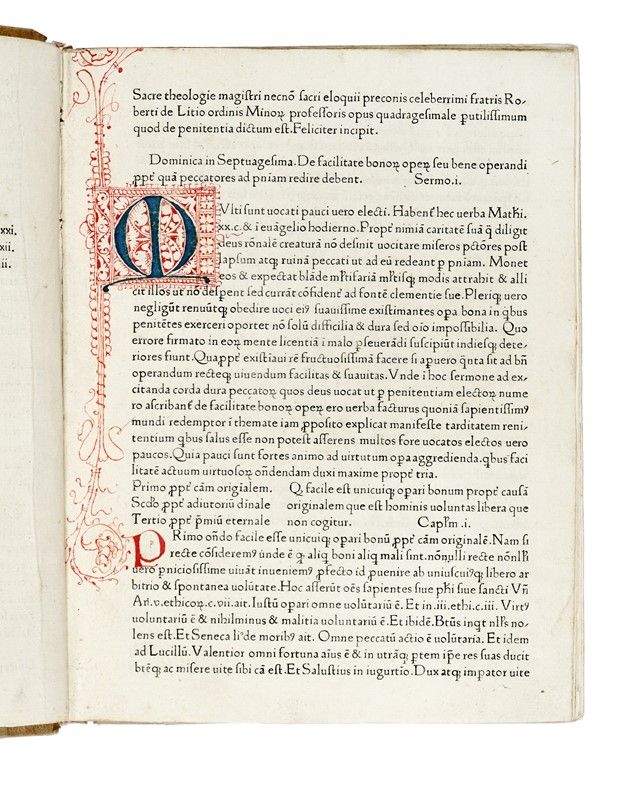 xxi.
xii.
ii.
Sacre theologie magistri necnō sacri eloquii preconis celeberrimi fratris Ro-
berti de Litio ordinis Minoꝝ professoris opus quadragesimale ꝑutilissimum
quod de penitentia dictum est.Feliciter incipit.
Dominica in Septuagesima.De facilitate bonoꝝ opeꝝ seu bene operandi
ꝓpt̄ quā peccatores ad pn̄iam redire debent. Sermo.i.
MVlti sunt uocati pauci uero electi. Habent̄ hec uerba Matħi.
xx.c.& ī euāgelio hodierno.Propt̄ nimiā caritatē suā q̄ diligit
deus rōnalē creaturā nō desinit uocitare miseros pctōres post
lapsum atqꝫ ruinā peccati ut ad eū redeant ꝑ pn̄iam. Monet
eos & expectat blāde ml̄tifariā ml̄tisqꝫ modis attrahit & alli
cit illos ut nō despent sed currāt cōfident̄ ad fontē clementie sue.Pleriqꝫ uero
negligūt renuūtqꝫ obedire uoci eiꝰ suauissime existimantes oꝑa bona in qbus
penitētes exerceri oportet nō solū difficilia & dura sed oīo impossibilia. Quo
errore firmato in eoꝝ mente licentiā i malo ꝑseuerādi suscipiūt indiesqꝫ dete-
riores fiunt.Quaꝓpt̄ existiaui rē fructuosissimā facere si apuero qnta sit ad bn̄
operandum recteqꝫ uiuendum facilitas & suauitas.Vnde ī hoc sermone ad ex-
citanda corda dura peccatoꝝ quos deus uocat ut ꝑ penitentiam electoꝝ nume
ro ascribant̄ de facilitate bonoꝝ opeꝝ ero uerba facturus quoniā sapientissimꝰ
mundi redemptor ī themate iam ꝓposito explicat manifeste tarditatem reni-
tentium qbus salus esse non potest asserens multos fore uocatos electos uero
paucos.Quia pauci sunt fortes animo ad uirtutum oꝑa aggredienda.qbus faci
litatē actuum uirtuosoꝝ on̄dendam duxi maxime propt̄ tria.
Primo ꝓpt̄ cām origīalem. Q facile est unicuiqꝫ oꝑari bonum propt̄ causā
Scd̄o ꝓpt̄ adiutoriū dīnale originalem que est hominis uoluntas libera que
Tertio ꝓpt̄ p̄miū eternale non cogitur. Capl̄m .i.
PRimo on̄do facile esse unicuiqꝫ oꝑari bonū ꝓpt̄ cām originalē.Nam si
recte cōsideremꝰ ūnde ē q̄ aliq boni aliq mali sunt.nōnulli recte nōnlli
uero ꝑniciosissime uiuāt inueniemꝰ ꝓfecto id ꝓuenire ab uniuscuiꝰqꝫ libero ar
bitrio & spontanea uolūtate.Hoc asserūt oēs sapientes siue pħi siue sancti Vn̄
Ari.v.ethicoꝝ.c.vii.ait.Iustū oꝑari omne uolūtariū ē. Et in.iii.ethi.c.iii. Virtꝰ
uoluntariū ē & nihilminus & malitia uoluntariū ē. Et ibidē.Btūs inqt nl̄ls no-
lens est.Et Seneca li°de moribꝰ ait. Omne peccatū actio ē uolūtaria. Et idem
ad Lucillū. Valentior omni fortuna aīus ē & in utrāqꝫ ꝑtem ip̄e res suas ducit
btēqꝫ ac misere uite sibi cā est.Et Salustius in iugurtio.Dux atqꝫ imꝑator uite